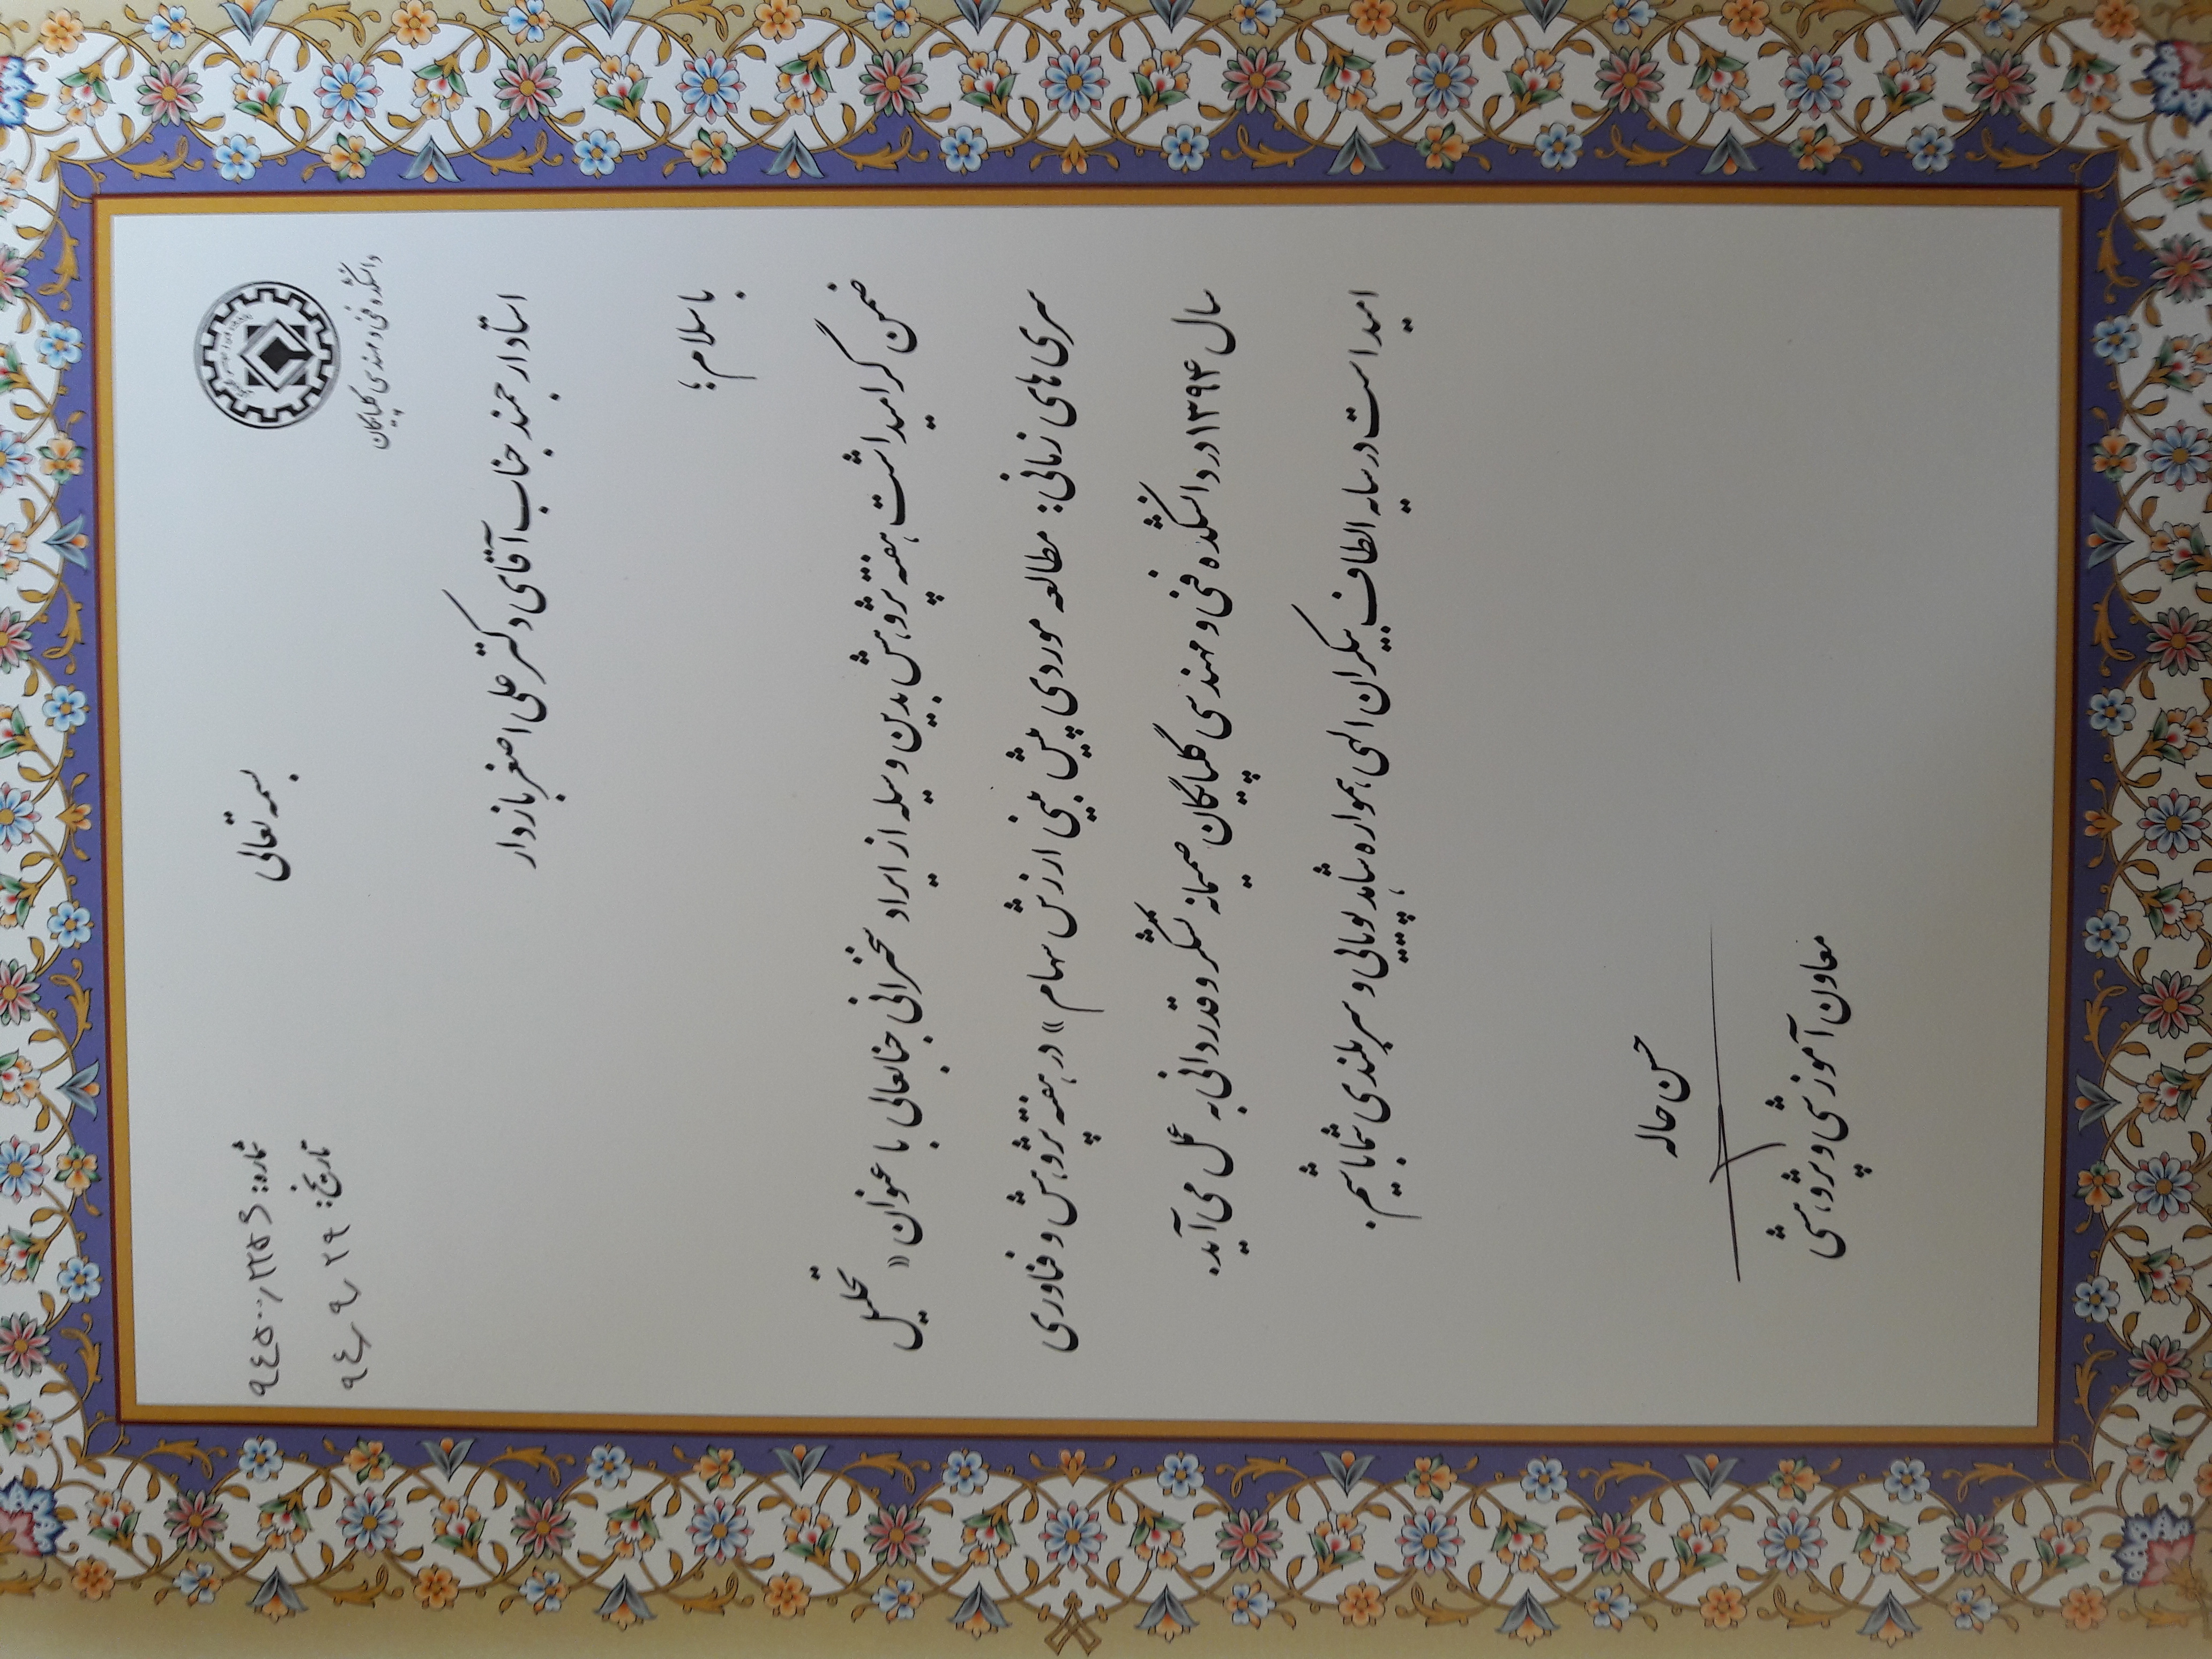 بسمه تعالی
دانشکده فنی و مهندسی گلپایگان
شماره: ۹٤٥۰۰/۲۲٥۶
تاریخ: ۹٤/۹/۲۹
استاد ارجمند جناب آقای دکتر علی اصغر بازدار
با سلام؛
ضمن گرامیداشت هفته پژوهش بدین وسیله از ایراد سخنرانی جنابعالی با عنوان « تحلیل
سری های زمانی: مطالعه موردی پیش بینی ارزش سهام» در هفته پژوهش و فناوری
سال ۱۳۹۴ در دانشکده فنی و مهندسی گلپایگان صمیمانه تشکر و قدردانی به عمل می آید.
امید است در سایه الطاف بیکران الهی همواره شاهد پویایی و سربلندی شما باشیم.
حسن حاله
معاون آموزشی و پژوهشی